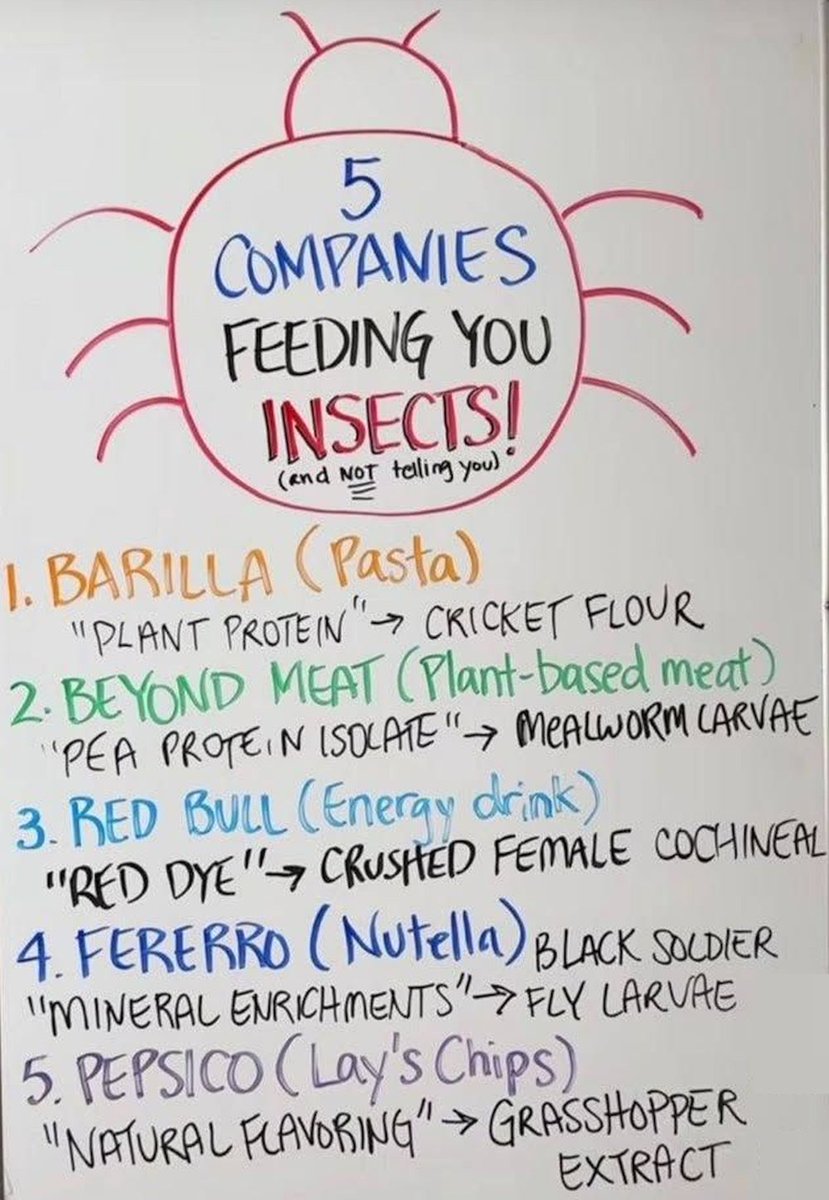 5
COMPANIES
FEEDING YOU
INSECTS!
(and NOT telling you)
1. BARILLA (Pasta)
"PLANT PROTEIN" → CRICKET FLOUR
2. BEYOND MEAT (Plant-based meat)
"PEA PROTEIN ISOLATE" → MEALWORM LARVAE
3. RED BULL (Energy drink)
"RED DYE" → CRUSHED FEMALE COCHINEAL
4. FERERRO (Nutella) BLACK SOLDIER
"MINERAL ENRICHMENTS" → FLY LARVAE
5. PEPSICO (Lay's Chips)
"NATURAL FLAVORING" → GRASSHOPPER
EXTRACT